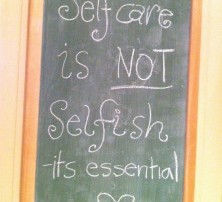 Selfcare
is NOT
Selfish
-its essential